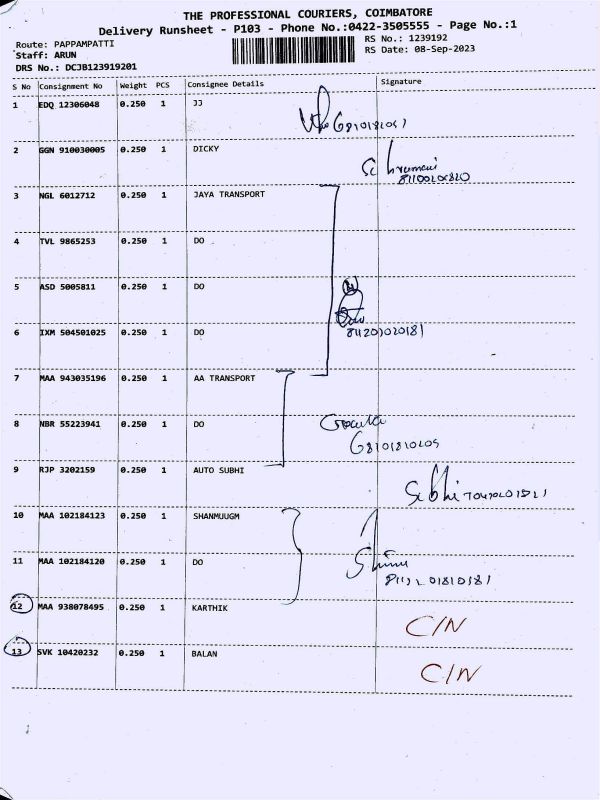 THE PROFESSIONAL COURIERS, COIMBATORE
Delivery Runsheet - P103 - Phone No.:0422-3505555 - Page No.:1
Route: PAPPAMPATTI
RS No.: 1239192
Staff: ARUN
RS Date: 08-Sep-2023
DRS No.: DCJB123919201
S No Consignment No Weight PCS Consignee Details Signature
1 EDQ 12306048 0.250 1 JJ
2 GGN 910030005 0.250 1 DICKY
3 NGL 6012712 0.250 1 JAYA TRANSPORT
4 TVL 9865253 0.250 1 DO
5 ASD 5005811 0.250 1 DO
6 IXM 504501025 0.250 1 DO
7 MAA 943035196 0.250 1 AA TRANSPORT
8 NBR 55223941 0.250 1 DO
9 RJP 3202159 0.250 1 AUTO SUBHI
10 MAA 102184123 0.250 1 SHANMUUGM
11 MAA 102184120 0.250 1 DO
12 MAA 938078495 0.250 1 KARTHIK C/N
13 SVK 10420232 0.250 1 BALAN C/N